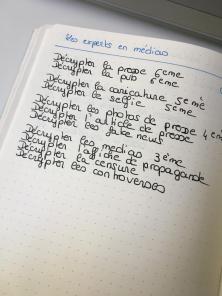 Les experts en médias
Décrypter la presse 6ème
Décrypter la pub 6ème
Décrypter la caricature 5ème
Décrypter le selfie 5ème
Décrypter les photos de presse 4ème
Décrypter l'article de presse
Décrypter les fake news
Décrypter les medias 3ème
Décrypter l'affiche de propagande
Décrypter la censure
Décrypter les controverses